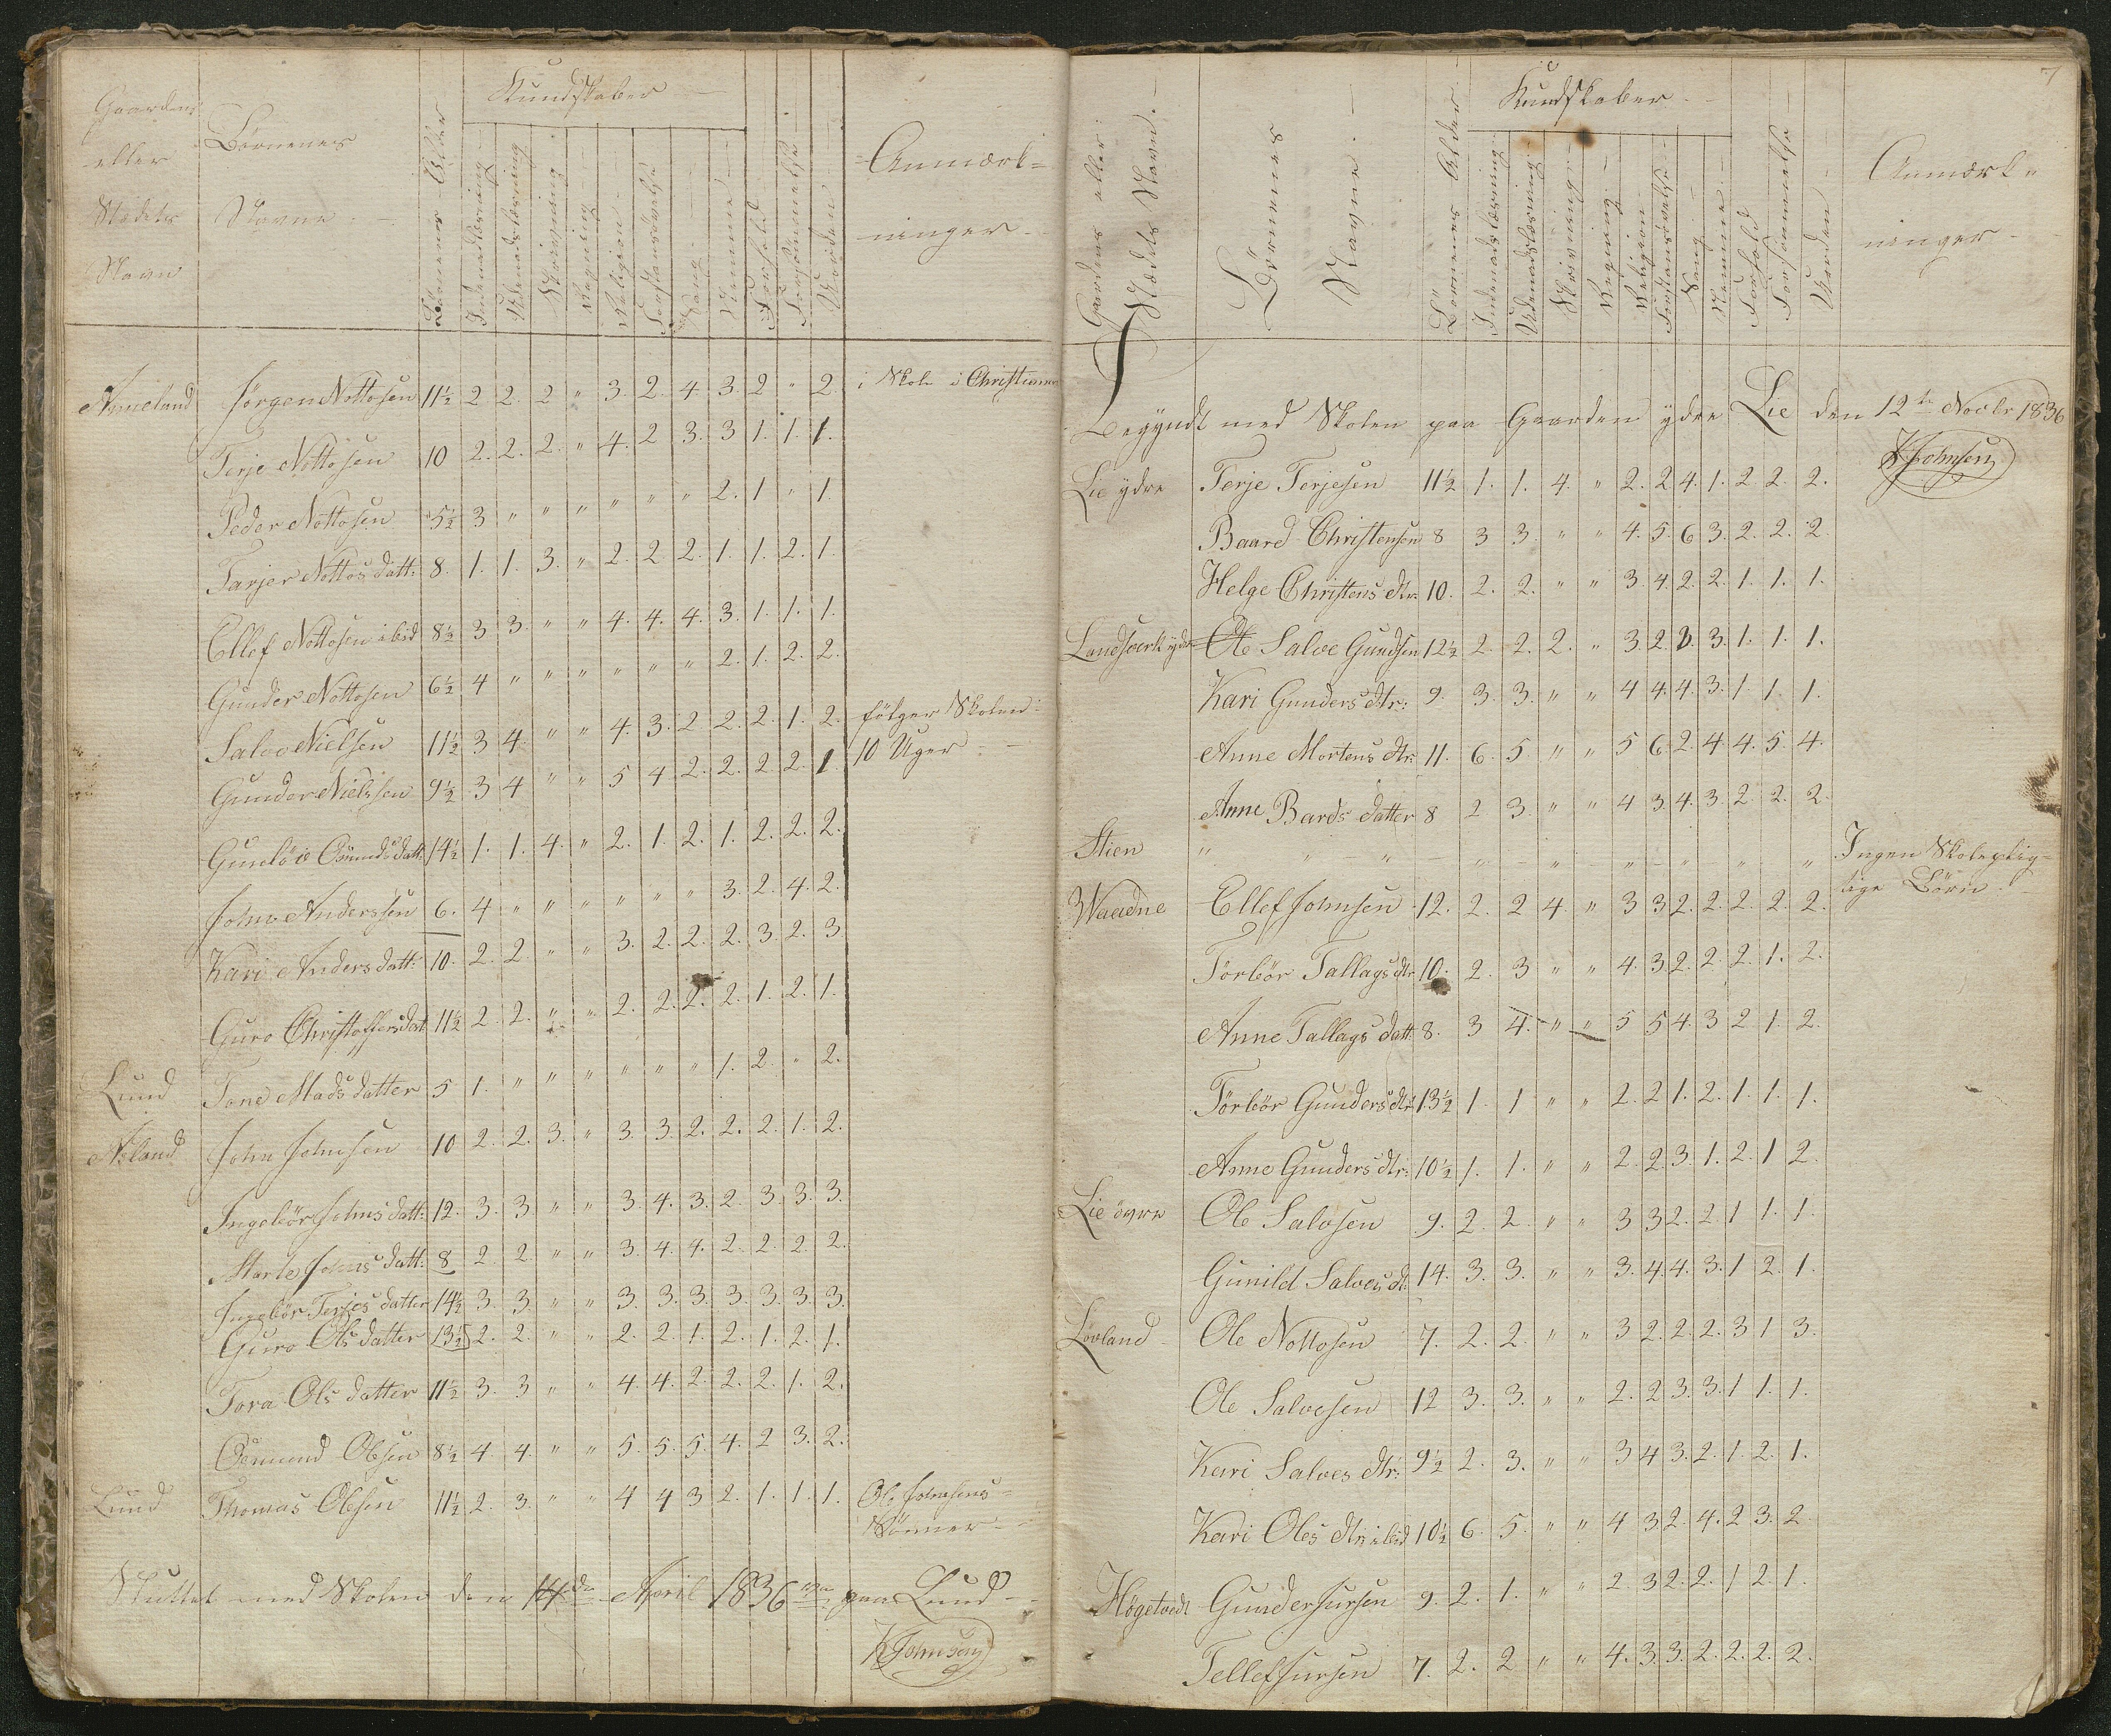 Gaardens
eller
Stedets
Navn
Børnenes
Navne
Børnenes Alder
Kundskaber
Indenadslæsning
Udenadslæsning
Skrivning
Regning
Religion
Forstandsövelse
Sang
Nemme
Forhold
Forsömmelse
Værden
Anmærk=
ninger
Aaneland Jørgen Nottosen 11½ 2 2. 2 " 3. 2. 4. 3. 2 " 2. i Skole i Christians
Terje Nottosen 10 2. 2. 2. " 4. 2 3. 3 1. 1. 1.
Peder Nottosen 5½ 3 " " " " " " 2. 1 " 1.
Tarjer Nottos datt: 8. 1. 1. 3. " 2. 2 2. 1. 1. 2. 1.
Ellef Nottosen ibid 8½ 3 3. " " 4. 4. 4. 3. 1. 1. 1.
Gunder Nottosen 6½ 4 " " " " " " 2. 1. 2. 2.
Salve Nielsen 11½ 3 4. " " 4. 3. 2 2. 2. 1. 2. følger Skolen
Gunder Nielssen 9½ 3 4 " " 5 4 2. 2. 2. 2. 1. 10 Uger
Gunelöv Osmunds datt: 14½ 1. 1. 4. " 2. 1. 2. 1. 2. 2. 2.
John Anderssen 6. 4 " " " " " " 3. 2. 4. 2.
Kari Anders datt: 10. 2. 2. " " 3. 2. 2. 2. 3. 2. 3.
Guro Christoffersdat 11½ 2 2. " " 2. 2. 2. 2. 1. 2. 1.
Lund Tone Mads datter 5 1. " " " " " " 1. 2. " 2.
Aasland John Johnsen 10 2. 2. 3. " 3. 3. 2. 2. 2. 1. 2.
Ingebör Johns datt: 12. 3. 3. " " 3. 4. 3. 2. 3. 3. 3.
Marte Johns datt: 8 2 2. " " 3. 4. 4. 2. 2. 2. 2.
Ingebör Terjes datter 14½ 3. 3. " " 3. 3. 3. 3. 3. 3. 3.
Guro Ols datter 13½ 2. 2. " " 2. 2. 1. 2. 1. 2. 1.
Tora Ols datter 11½ 3. 3. " " 4. 4. 2. 2. 2. 1. 2.
Osmund Olsen 8½ 4. 4. " " 5. 5. 5. 4. 2 3. 2.
Lund Thomas Olsen 11½ 2. 3. " " 4 4 3 2. 1. 1. 1. Ole Johnsens
Sönner
Sluttet med Skolen den 14de April 1836 paa Lund
K Johnsen
7
Gaardens eller
Stædets Navne.
Börnenes
Navne.
Börnenes Alder
Kundskaber
Indenadslæsning
Udenadslæsning
Skrivning
Regning
Religion
Forstandsövelse
Sang
Nemme
Forhold
Forsömmelse
Værden
Anmærk=
ninger
Begyndt med Skolen paa Gaarden ydre Lie den 12te Novbr 1836
K Johnsen
Lie ydre Terje Terjesen 11½ 1. 1. 4. " 2. 2. 4. 1. 2 2. 2.
Baard Christensen 8 3 3. " " 4. 5. 6 3. 2. 2. 2.
Helge Christens dtr: 10. 2. 2. " " 3. 4. 2. 2. 1. 1. 1.
Landsverk ydre Ole Salve Gundsen 12½ 2 2. 2. " 3. 2. 3. 3. 1. 1. 1.
Kari Gunders dtr: 9. 3. 3. " " 4 4. 4. 3. 1 1. 1.
Anne Mortens dtr: 11. 6. 5. " " 5 6. 2. 4 4. 5. 4.
Anne Bards datter 8 2 3. " " 4 3. 4. 3. 2. 2. 2.
Stien " " " " " " " " " Ingen Skolepligtige
Waadne Ellef Johnsen 12. 2. 2 4. " 3 3 2. 2. 2. 2. 2. Börn
Törbör Tallags dtr: 10. 2. 3 " " 4. 3. 2. 2. 2. 1. 2.
Anne Tallags datt 8. 3 4. " " 5 5 4. 3 2 1. 2.
Törbör Gunders dtr 13½ 1. 1 " " 2. 2 1. 2. 1. 1. 1.
Anne Gunders dtr: 10½ 1. 1. " " 2. 2. 3. 1. 2. 1 2.
Lie övre Ole Salvsen 9. 2. 2. " " 3 3 2. 2 1 1. 1.
Gunild Salves d: 14. 3. 3. " " 3. 4. 4. 3. 1 2. 1.
Lövland Ole Nottosen 7. 2. 2. " " 3 2. 2. 2. 3 1 3.
Ole Salvesen 12 3. 3. " " 2. 2 3. 3. 1 1. 1.
Kari Salves dtr: 9½ 2. 3. " " 3 4 3. 2. 1. 2. 1.
Kari Oles dtr: ibid 10½ 6. 5. " " 4 3. 2. 4. 2 3. 2
Högetvedt Gunder Jursen 9. 2. 1. " " 2. 3 2. 2. 1 2. 1.
Tellef Jursen 7. 2. 2 " " 4. 3. 3. 2. 2. 2. 2.